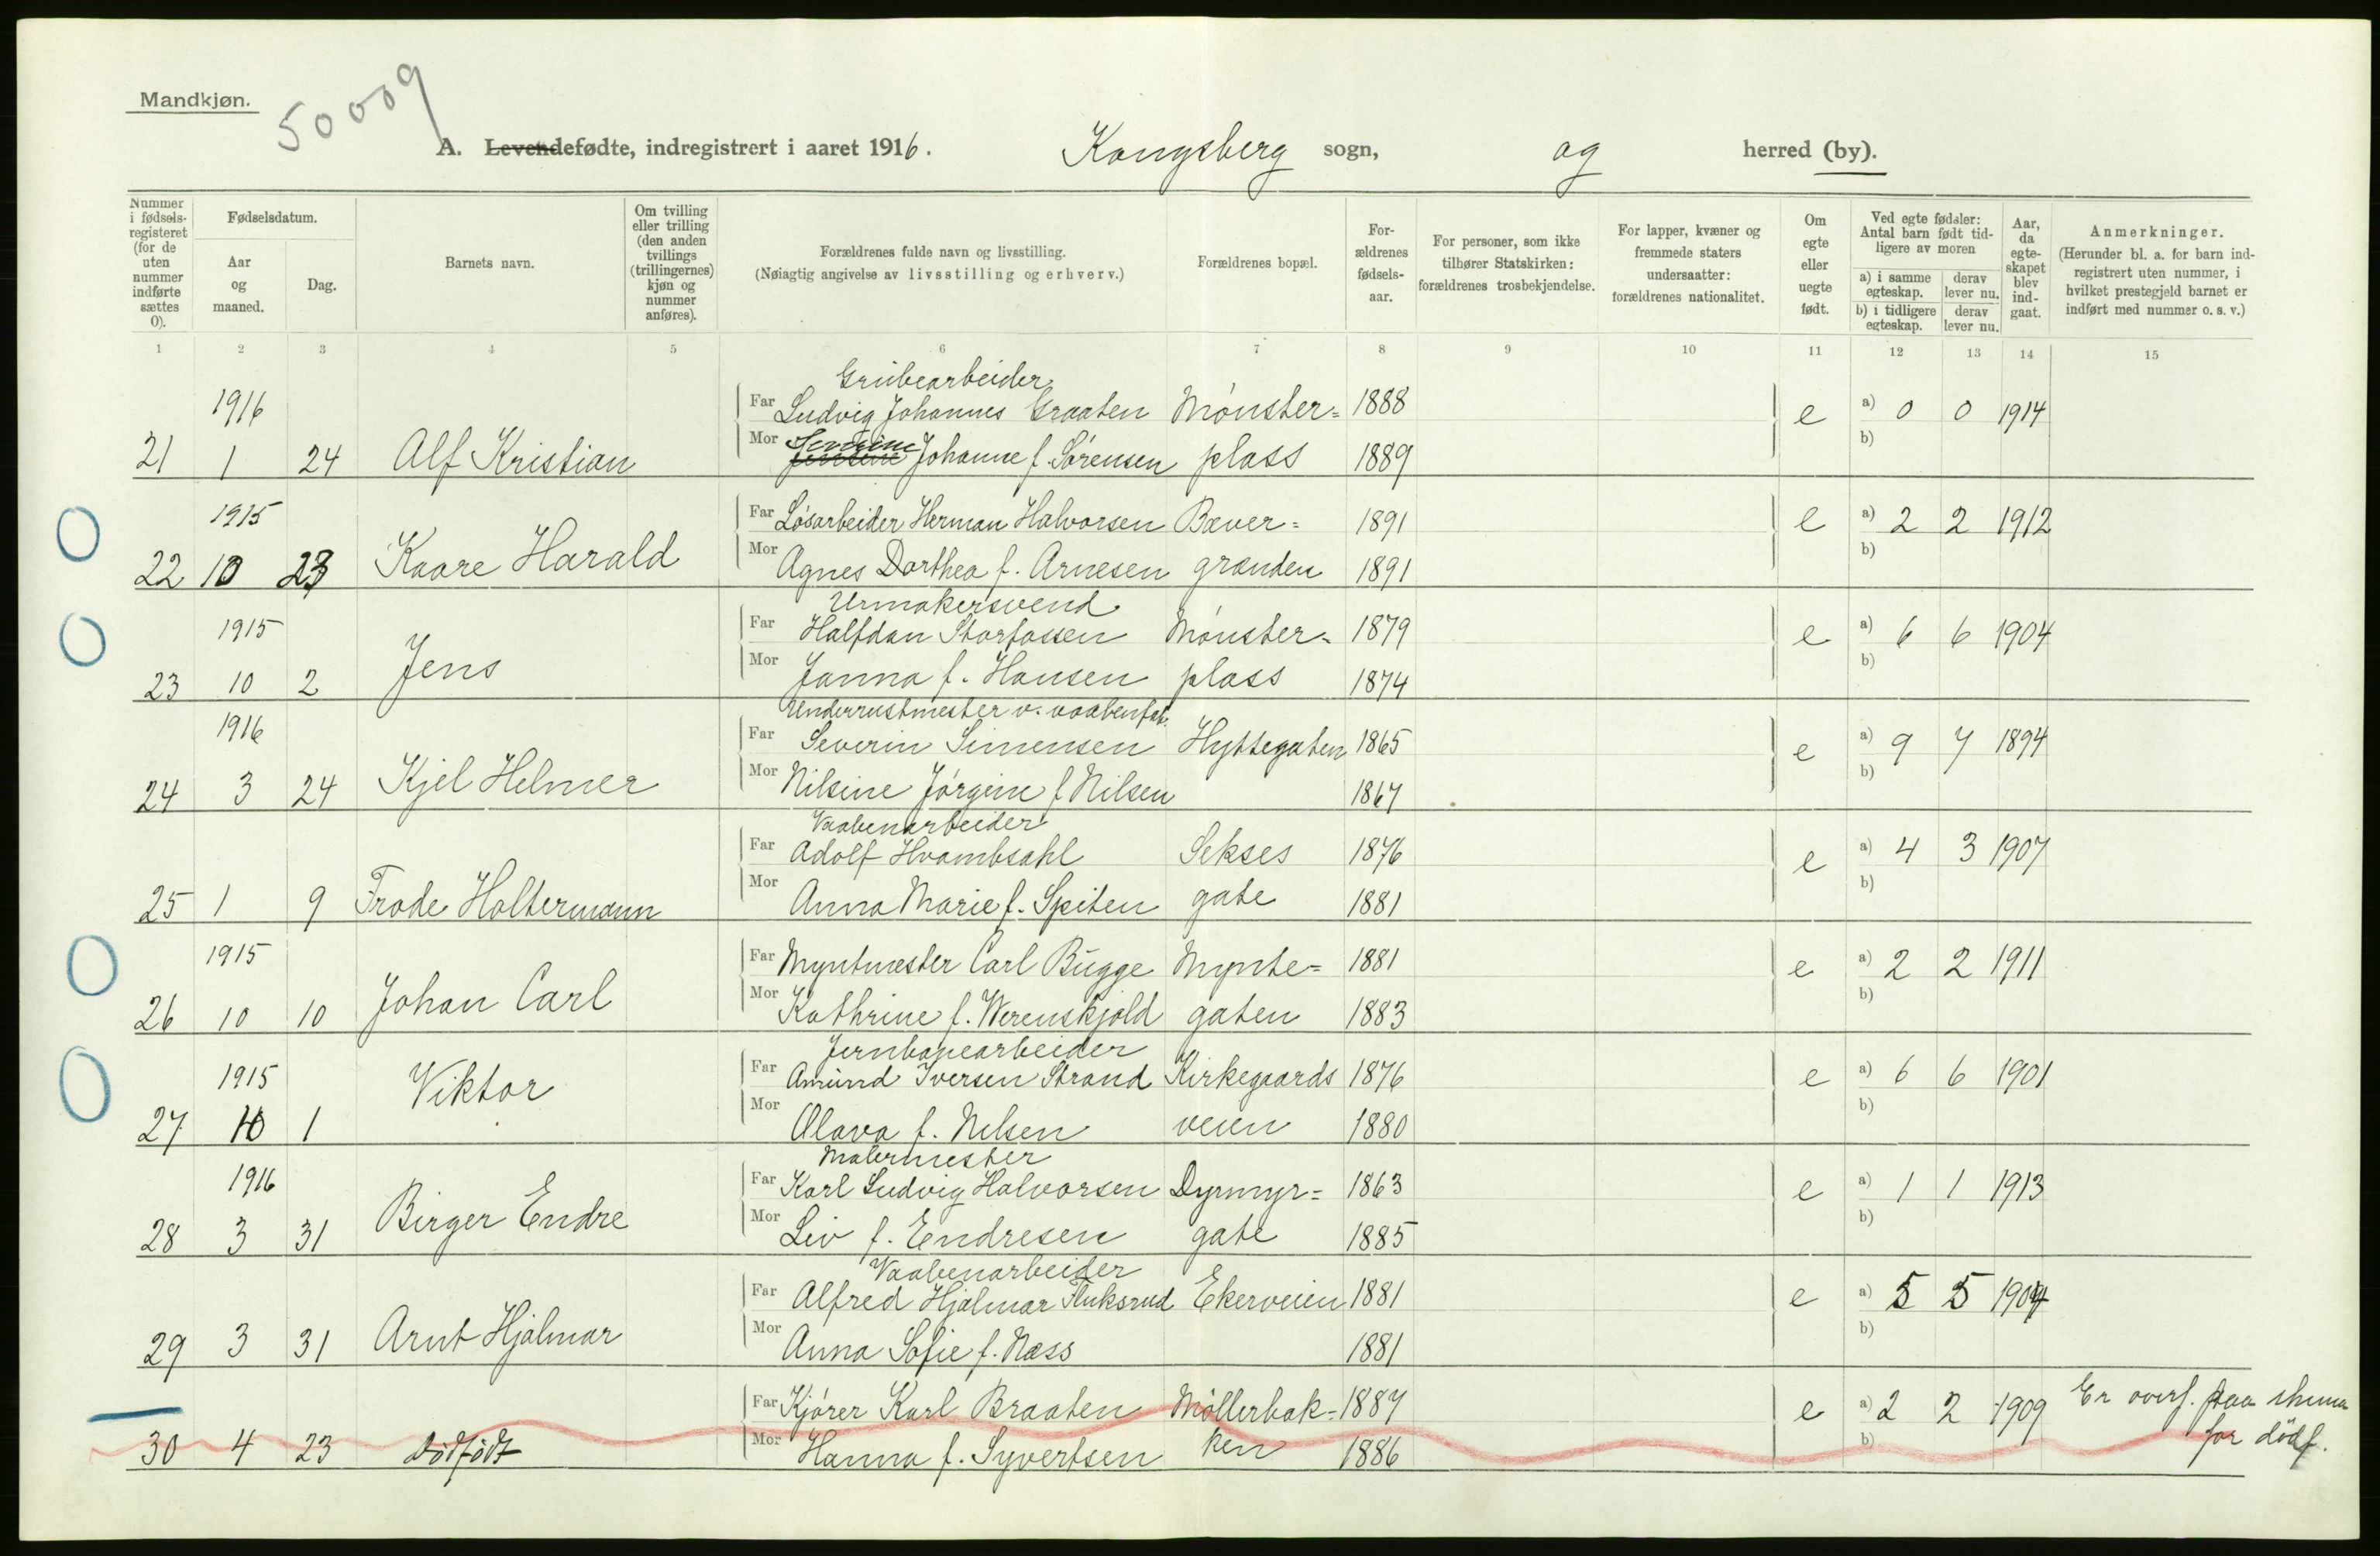 Mandkjøn.
50009
A. Levendefødte, indregistrert i aaret 1916. Kongsberg sogn, og herred (by).
Nummer i fødsels-registeret (for de uten nummer indførte sættes 0).
Fødselsdatum.
Aar og maaned.
Dag.
Barnets navn.
Om tvilling eller trilling (den anden tvillings (trillingernes) kjøn og nummer anføres).
Forældrenes fulde navn og livsstilling.
(Nøiagtig angivelse av livsstilling og erhverv.)
Forældrenes bopæl.
For-ældrenes fødsels-aar.
For personer, som ikke tilhører Statskirken: forældrenes trosbekjendelse.
For lapper, kvæner og fremmede staters undersaatter: forældrenes nationalitet.
Om egte eller uegte født.
Ved egte fødsler: Antal barn født tid-ligere av moren
a) i samme egteskap.
derav lever nu.
b) i tidligere egteskap.
derav lever nu.
Aar, da egte-skapet blev ind-gaat.
Anmerkninger.
(Herunder bl. a. for barn ind-registrert uten nummer, i hvilket prestegjeld barnet er indført med nummer o. s. v.)
1 2 3 4 5 6 7 8 9 10 11 12 13 14 15
Grubearbeider
1916 Far Ludvig Johannes Graaten Mønster= 1888 e a) 0 0 1914
21 1 24 Alf Kristian Mor Johanne f. Sørensen plass 1889 b)
1915 Far Løsarbeider Herman Halvorsen Bæver= 1891 e a) 2 2 1912
22 10 23 Kaare Harald Mor Agnes Dorthea f. Arnesen grænden 1891 b)
Urmakersvend
1915 Far Halfdan Storfossen Mønster= 1879 e a) 6 6 1904
23 10 2 Jens Mor Janna f. Hansen plass 1874 b)
Underrustmester v. vaabenfab.
1916 Far Severin Simensen Hyttegaten 1865 e a) 9 7 1894
24 3 24 Kjel Helmer Mor Nilsine Jørgine f Nilsen 1867 b)
Vaabenarbeider
Far Adolf Hvambsahl Sekses 1876 e a) 4 3 1907
25 1 9 Frode Haltermann Mor Anna Marie f. Spiten gate 1881 b)
1915 Far Myntmester Carl Bugge Mynte= 1881 e a) 2 2 1911
26 10 10 Johan Carl Mor Kathrine f. Werenskjold gaten 1883 b)
Jernbanearbeider
1915 Far Amund Iversen Strand Kirkegaards 1876 e a) 6 6 1901
27 10 1 Viktor Mor Olava f. Nelsen veien 1880 b)
Malermester
1916 Far Karl Ludvig Halvorsen Dyrmyr= 1863 e a) 1 1 1913
28 3 31 Birger Endre Mor Liv f. Endresen gate 1885 b)
Vaabenarbeider
Far Alfred Hjalmar Fluksrud Ekerveien 1881 e a) 5 5 1904
29 3 31 Arnt Hjalmar Mor Anna Sofie f. Næss 1881 b)
Far Kjører Karl Braaten Møllerbak= 1887 e a) 2 2 1909 Er overf. paa skema
30 4 23 Dødfødt Mor Hanna f. Syvertsen ken 1886 b) for dødf.